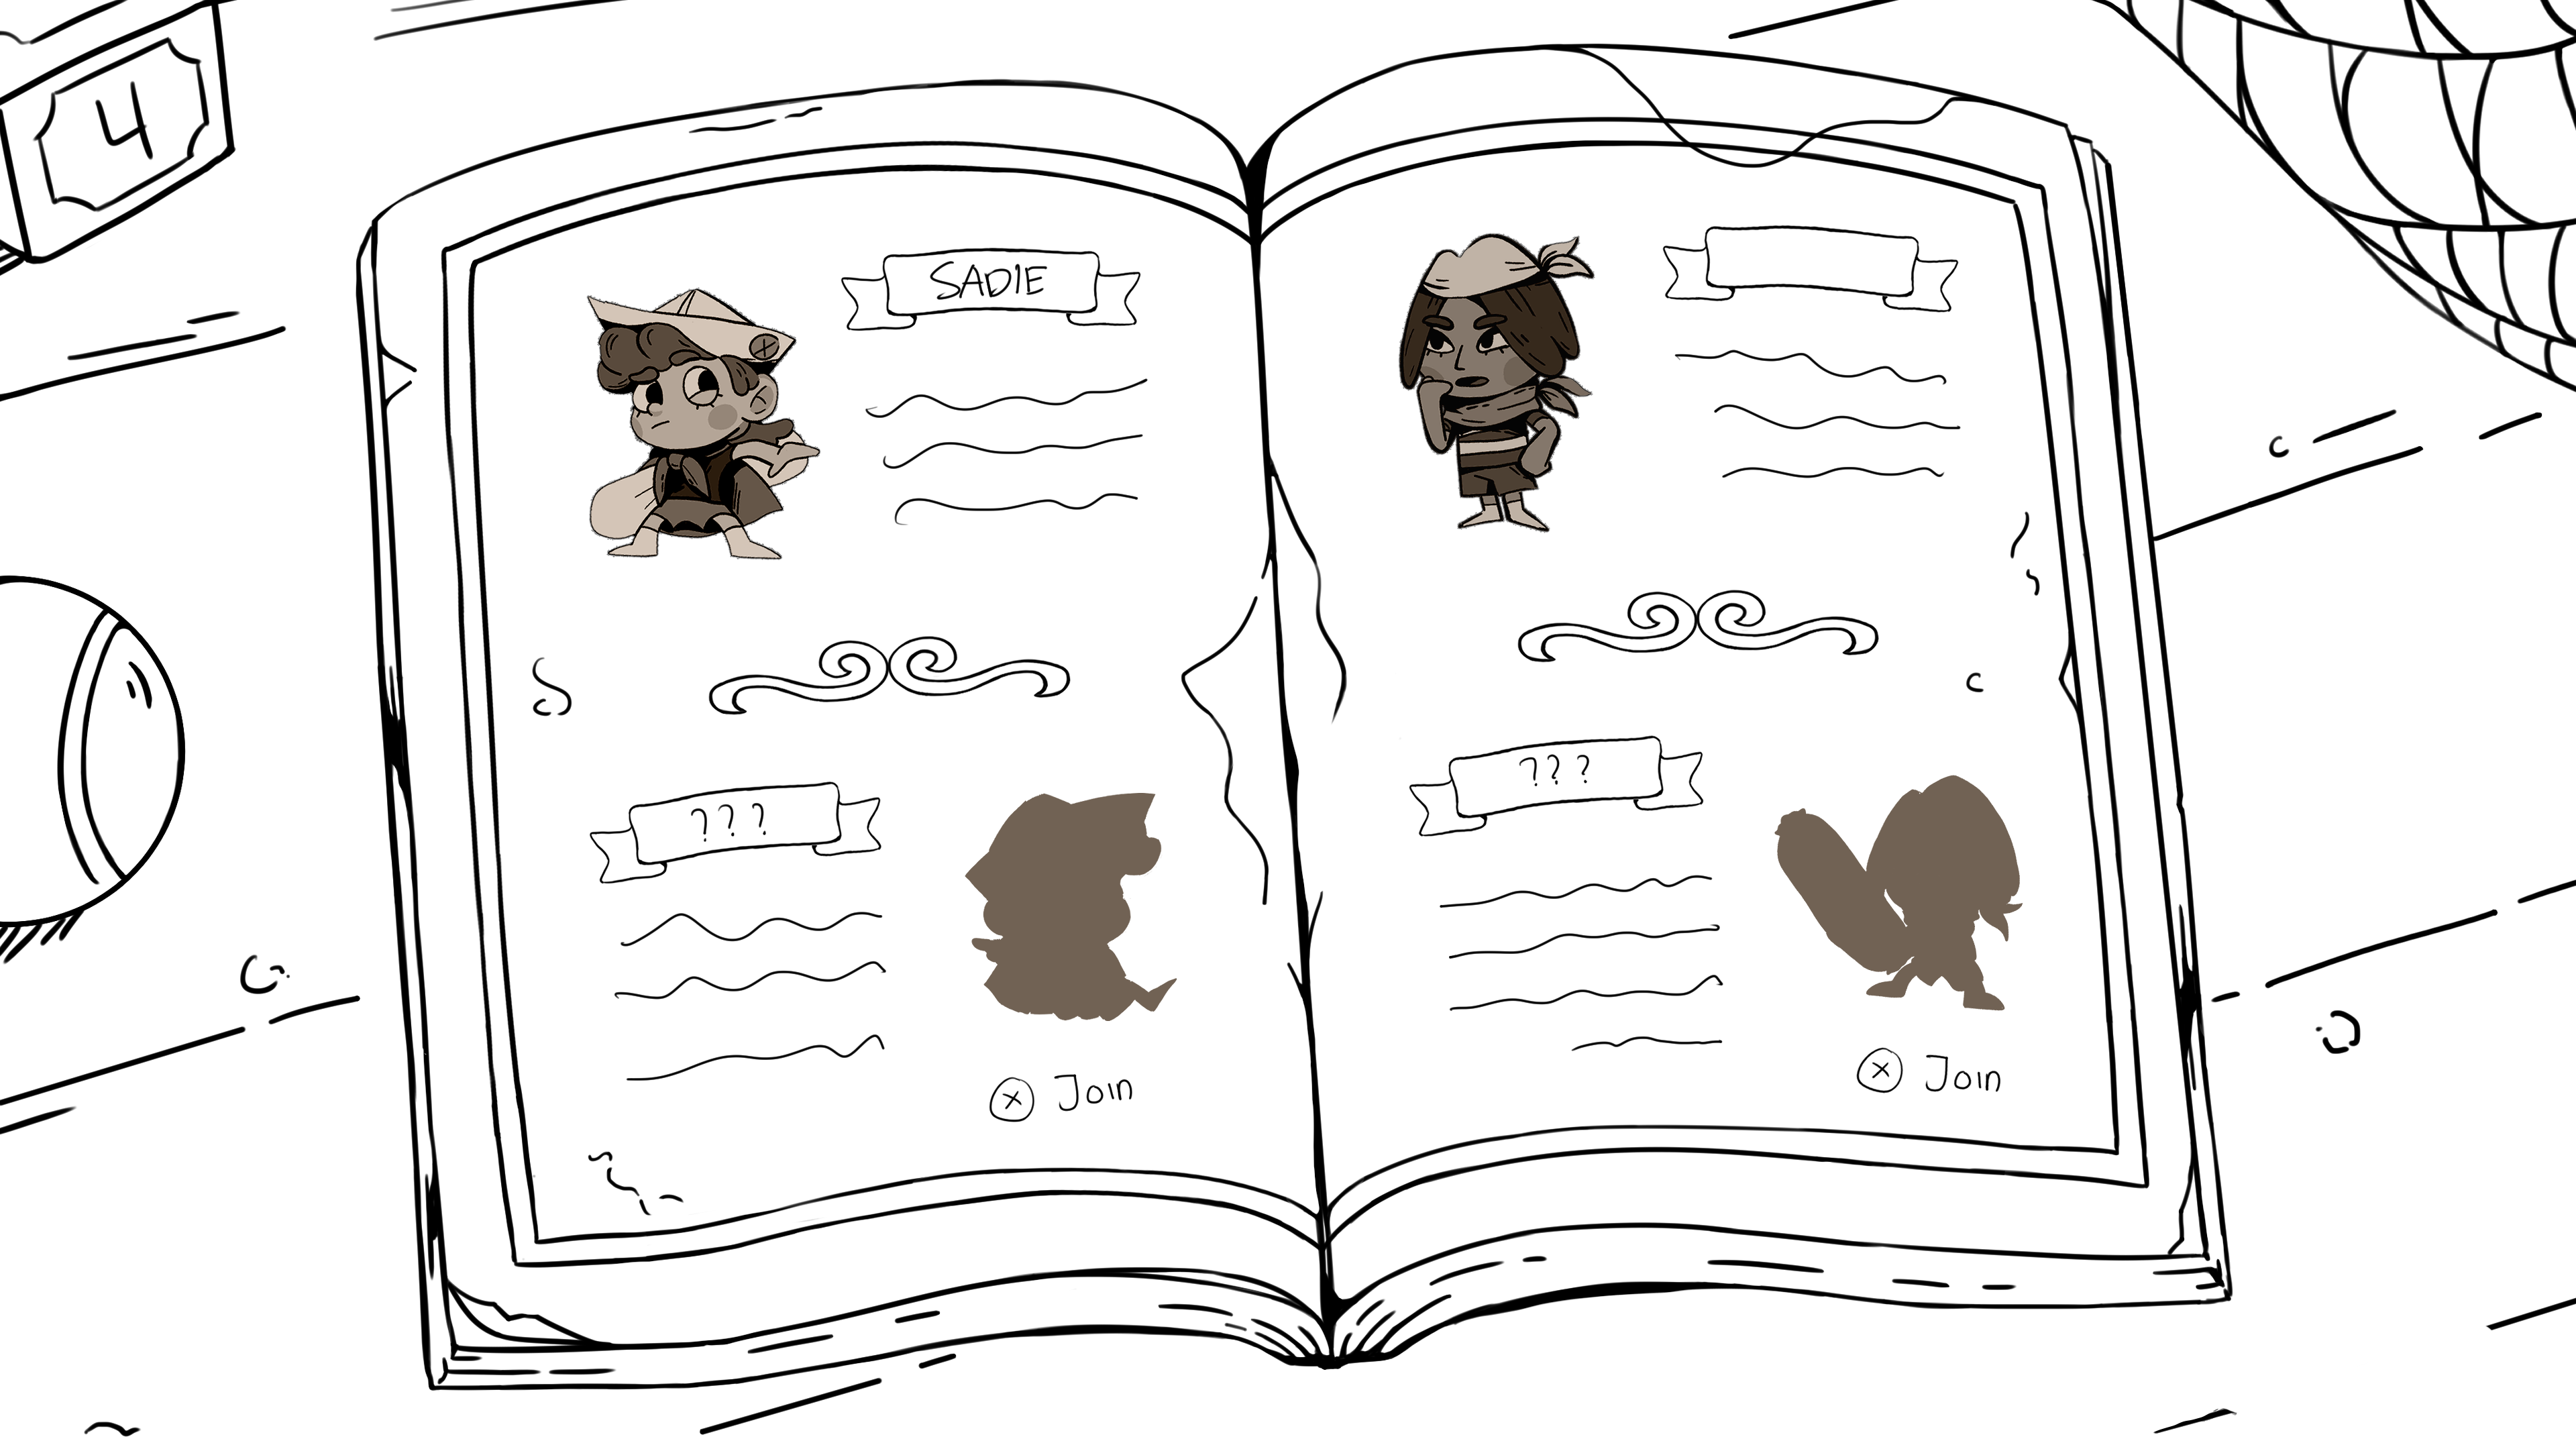 4
SADIE
???
Ⓧ Join
???
Ⓧ Join